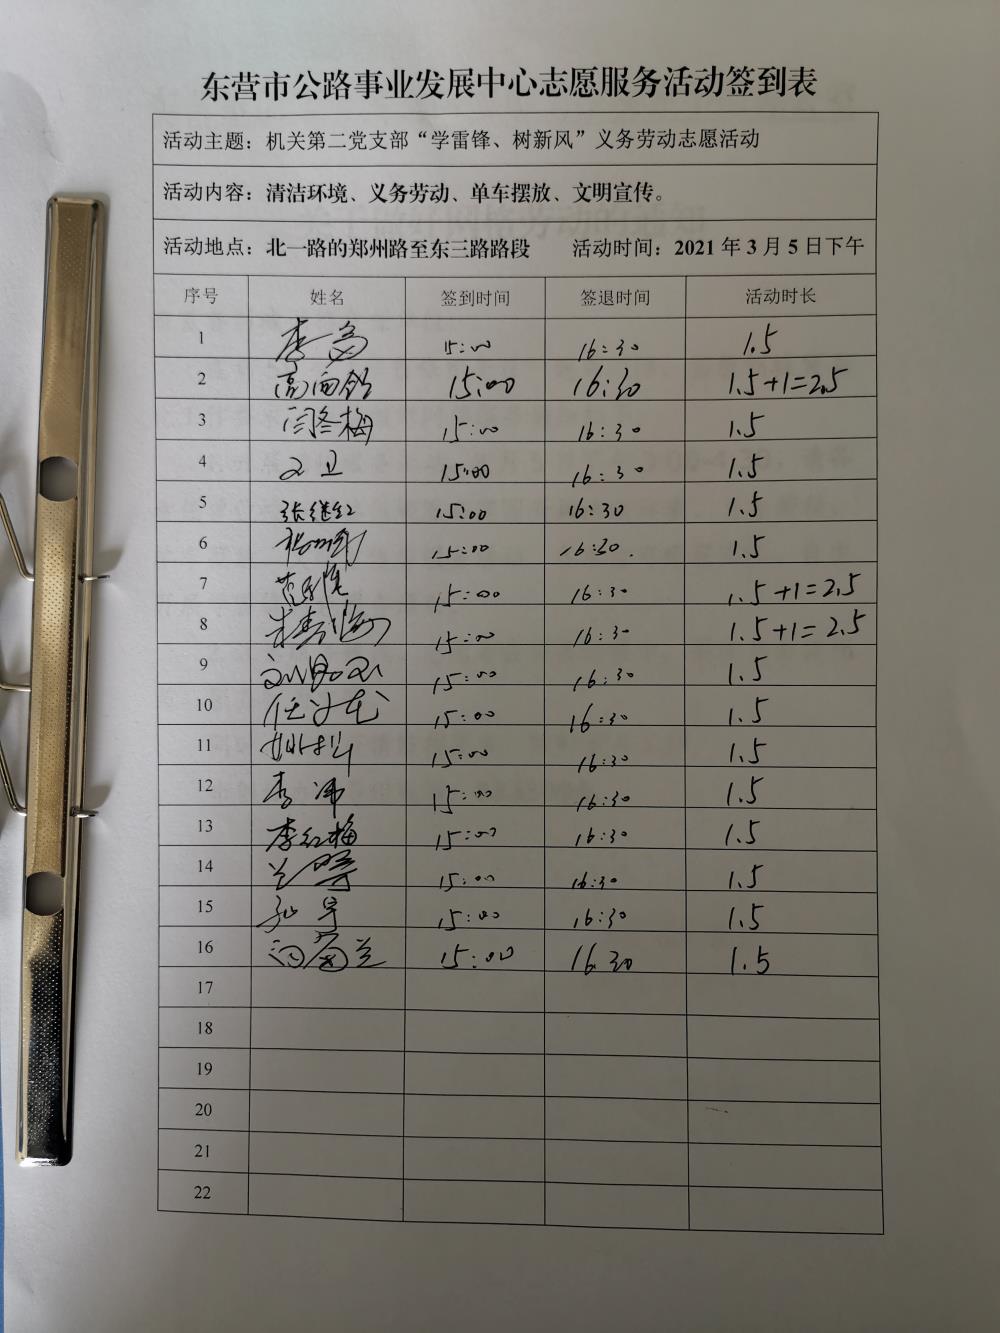 东营市公路事业发展中心志愿服务活动签到表
活动主题：机关第二党支部“学雷锋、树新风”义务劳动志愿活动
活动内容：清洁环境、义务劳动、单车摆放、文明宣传。
活动地点：北一路的郑州路至东三路路段 活动时间：2021年3月5日下午
序号 姓名 签到时间 签退时间 活动时长
1 15:00 16:30 1.5
2 15:00 16:30 1.5+1=2.5
3 闫冬梅 15:00 16:30 1.5
4 15:00 16:30 1.5
5 张继红 15:00 16:30 1.5
6 15:00 16:30. 1.5
7 15:00 16:30 1.5+1=2.5
8 15:00 16:30 1.5+1=2.5
9 15:00 16:30 1.5
10 15:00 16:30 1.5
11 15:00 16:30 1.5
12 李 15:00 16:30 1.5
13 李红梅 15:00 16:30 1.5
14 15:00 16:30 1.5
15 15:00 16:30 1.5
16 15:00 16:30 1.5
17
18
19
20
21
22